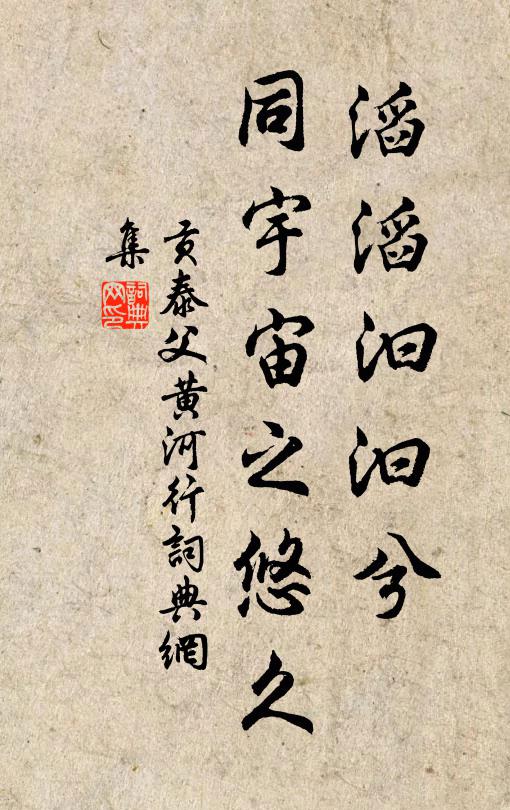 滔滔汩汩兮
同宇宙之悠久
贡泰父黄河行詞典網
集
詞典
网印